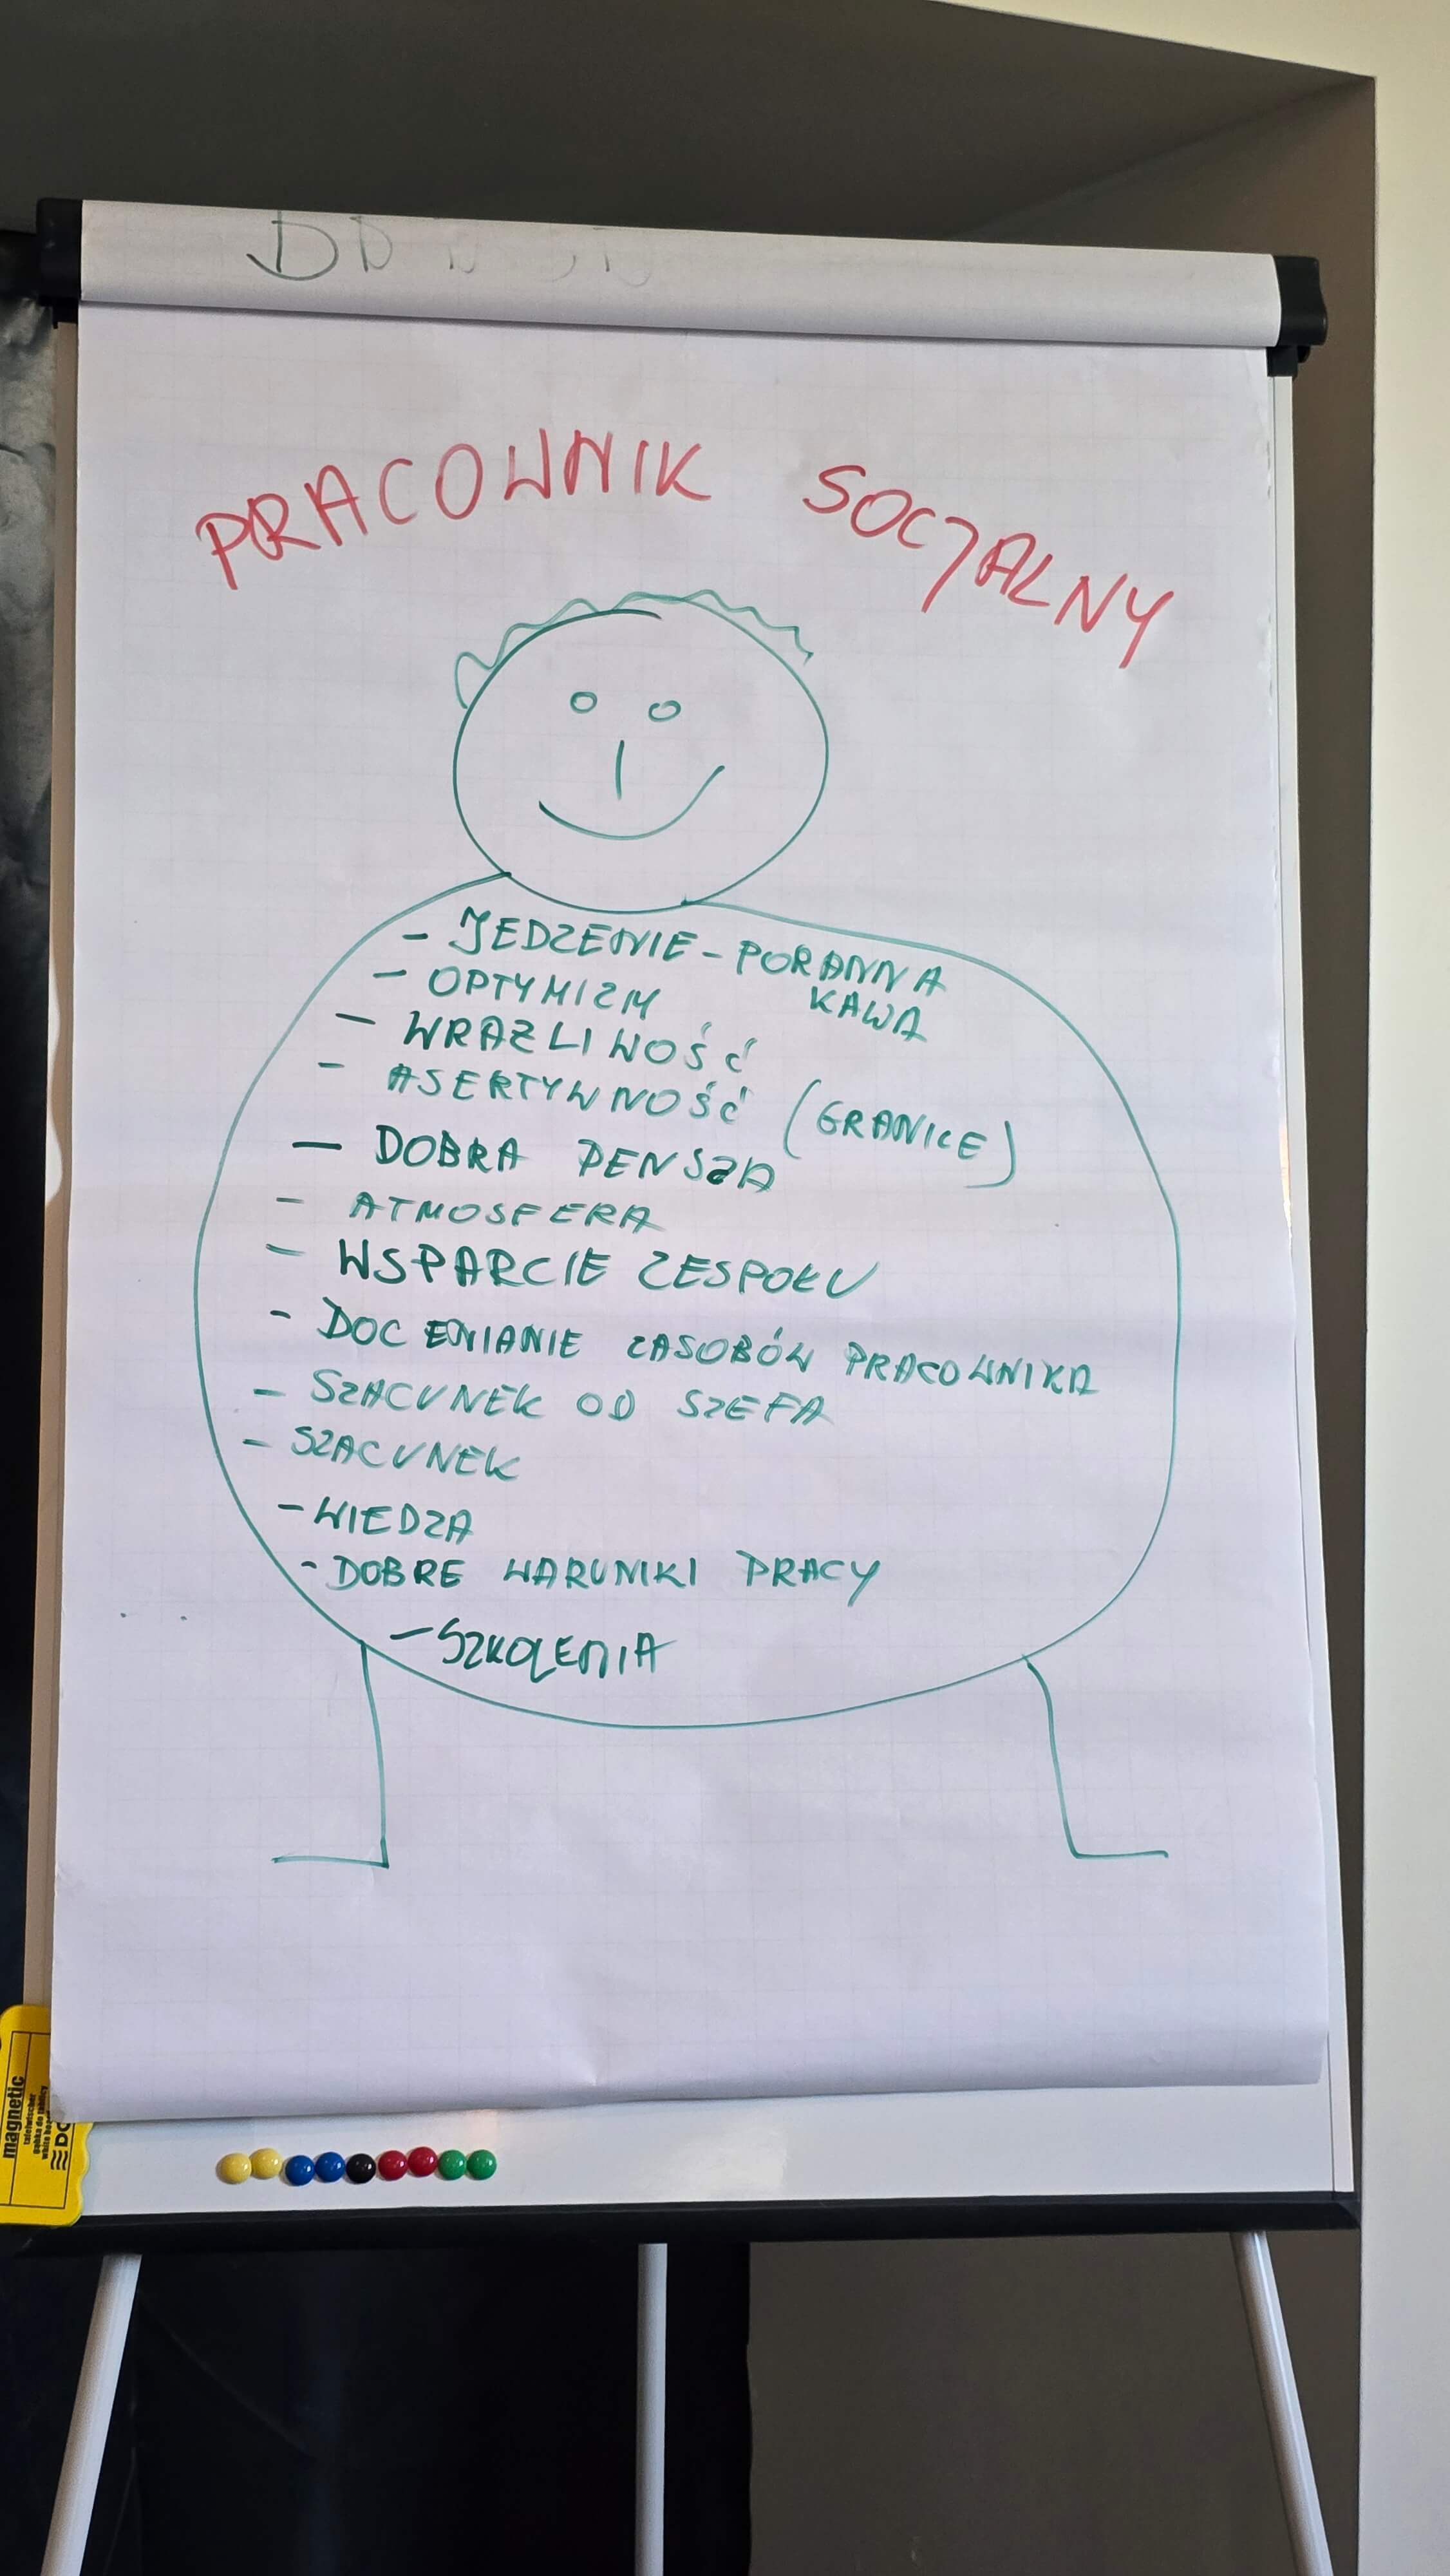 PRACOWNIK SOCJALNY
- JEDZENIE - PORANNA
KAWA
- OPTYMIZM
- WRAŻLIWOŚĆ
- ASERTYWNOŚĆ (GRANICE)
- DOBRA PENSJA
- ATMOSFERA
- WSPARCIE ZESPOŁU
- DOCENIANIE ZASOBÓW PRACOWNIKA
- SZACUNEK OD SZEFA
- SZACUNEK
- WIEDZA
- DOBRE WARUNKI PRACY
- SZKOLENIA
magnetic